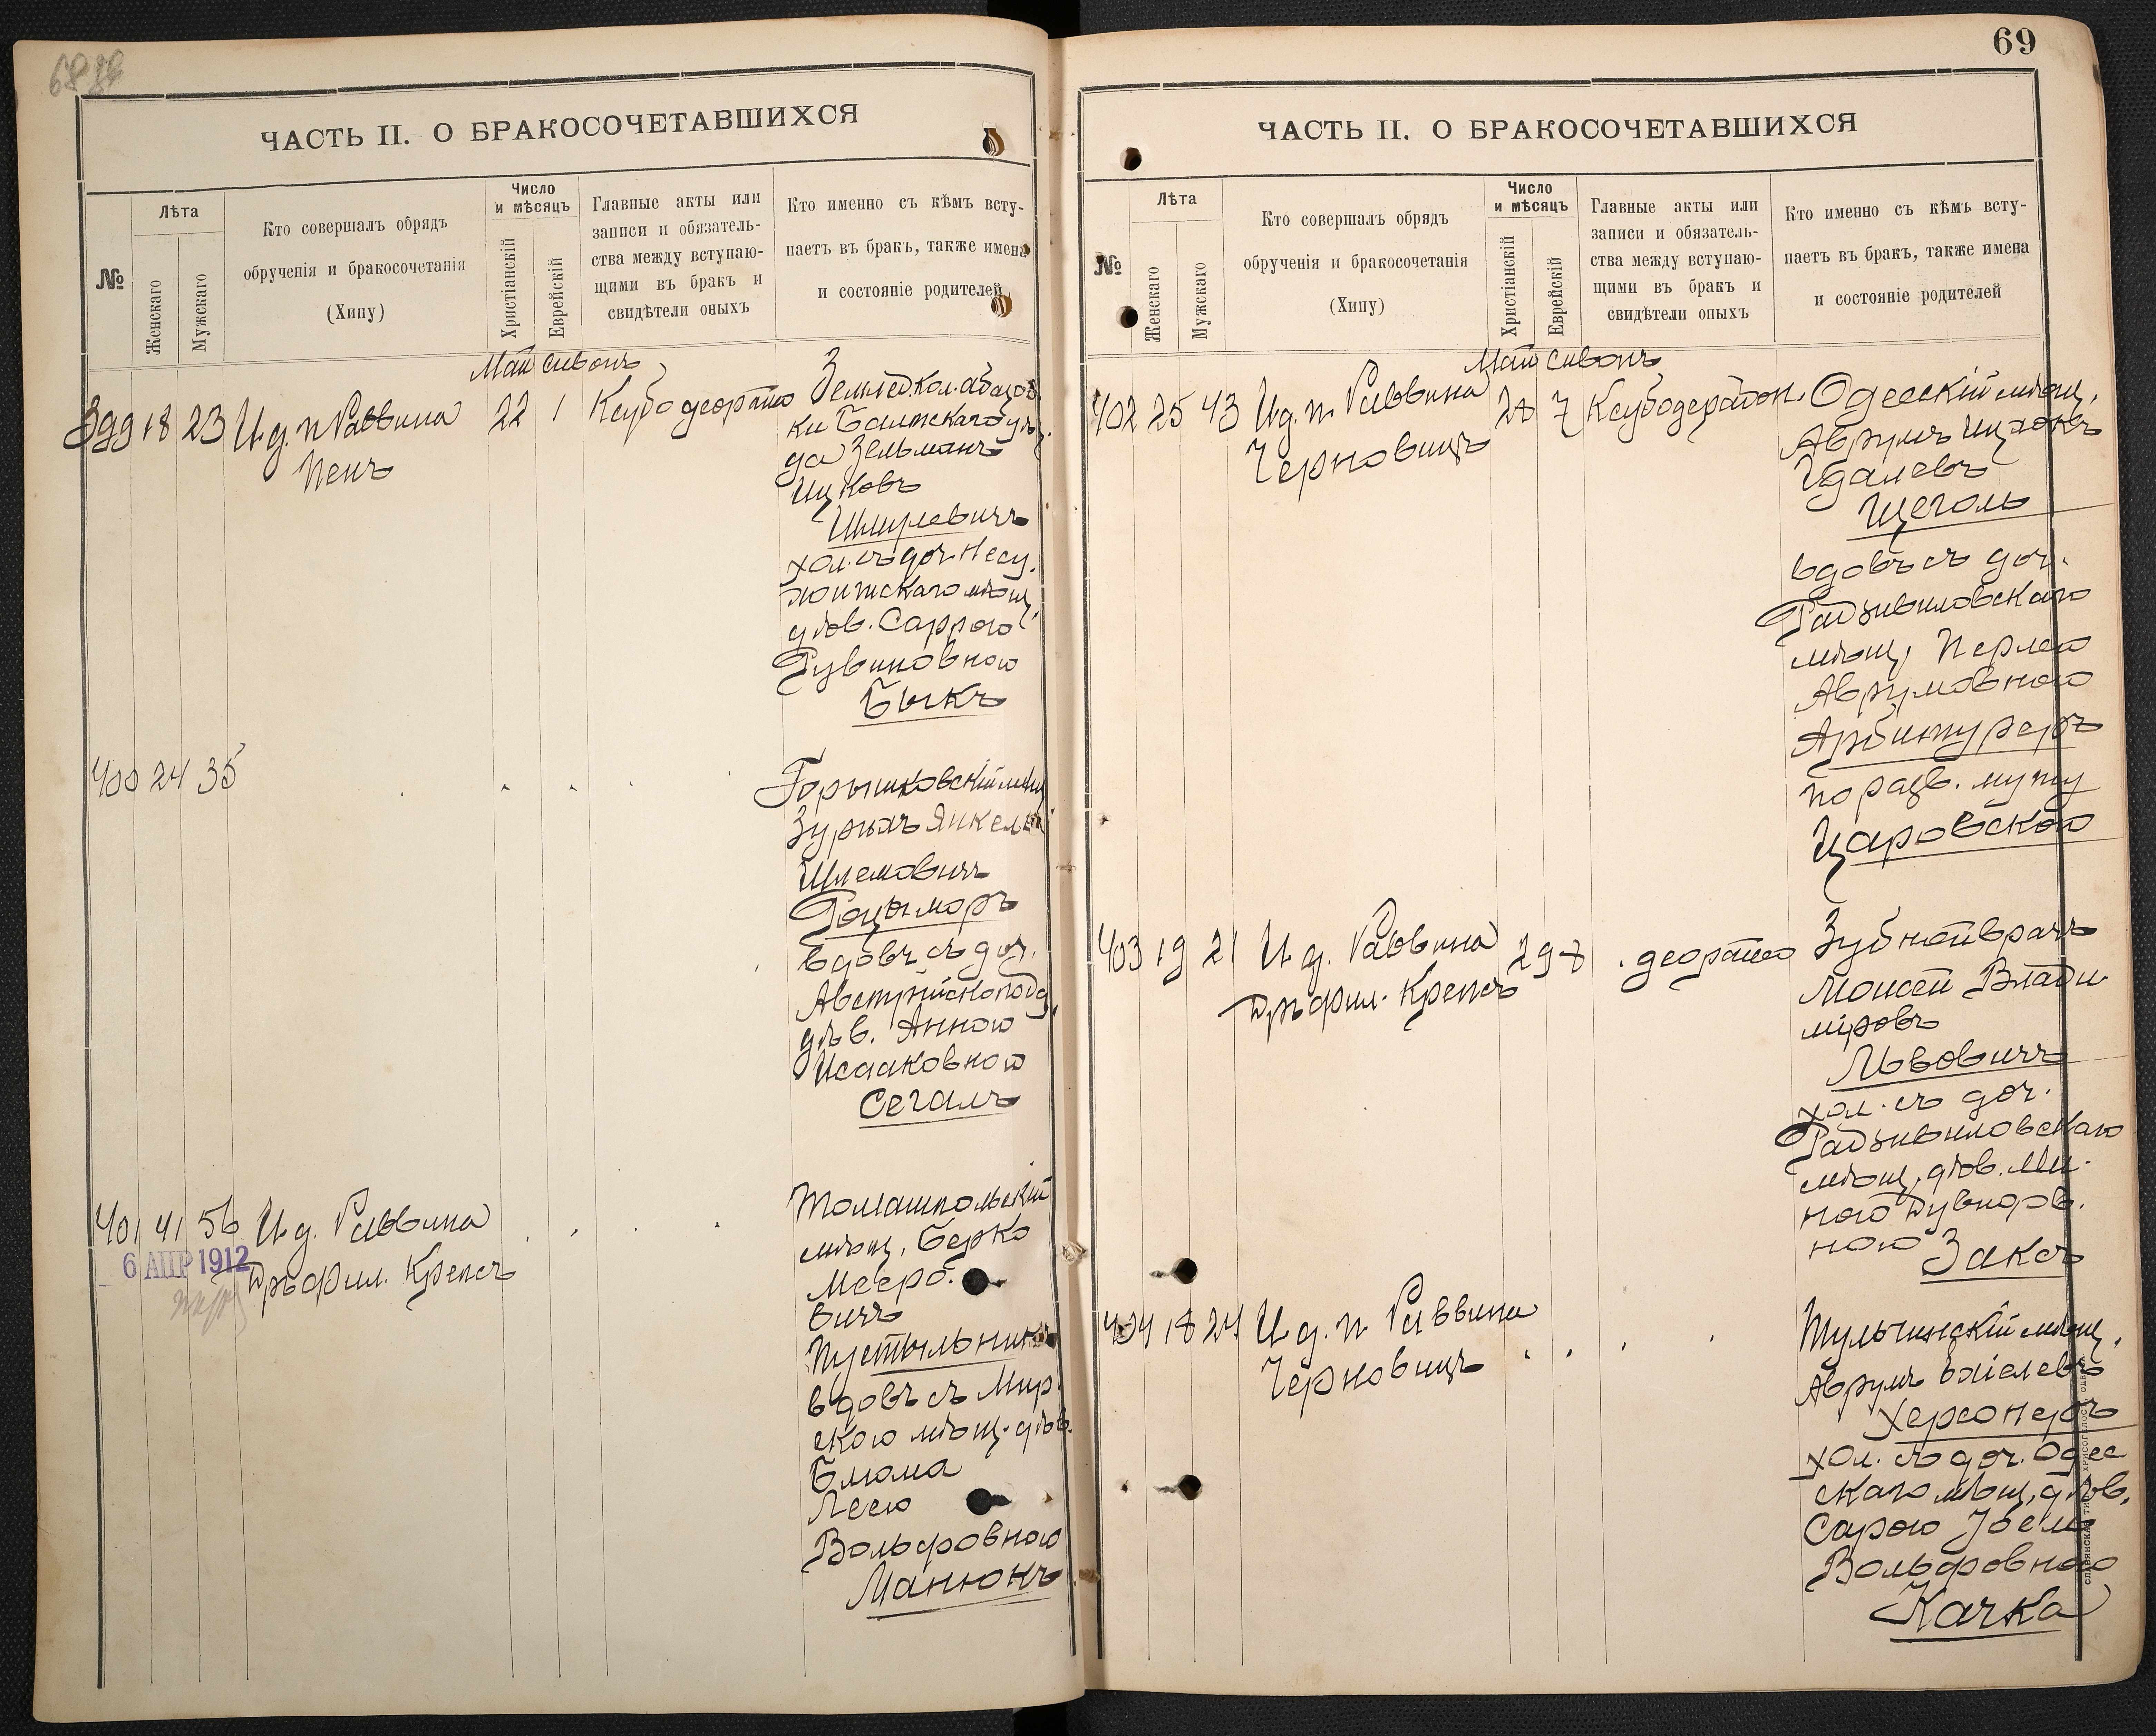 68
ЧАСТЬ II. О БРАКОСОЧЕТАВШИХСЯ
№
Лѣта
Женскаго
Мужскаго
Кто совершалъ обрядъ
обрученія и бракосочетанія
(Хипу)
Число
и мѣсяцъ
Христіанскій
Еврейскій
Главные акты или
записи и обязатель-
ства между вступаю-
щими въ бракъ и
свидѣтели оныхъ
Кто именно съ кѣмъ всту-
паетъ въ бракъ, также имена
и состояніе родителей
Май Сивонъ
399 18 23 И. д. п. Раввина
Пенъ
22 1
Земледкол. абазов
ки Балтскаго уѣз
да Зельманъ
Ицковъ
Шмулевичъ
хол. съ доч.
мѣщ.
дѣв. Саррою
Рувиновною
Быкъ
400 24 35
Горышковскій мѣщ
Янкель
Шлемовичъ
Роцыморъ
вдовъ съ доч.
Австрійско подд.
дѣв. Анною
Исааковною
Сегалъ
401 41 56 И. д. Раввина
6 АПР 1912
Дръ фил. Крепсъ
Томашпольскій
мѣщ. Берко
Мееро.
вичъ
Пустыльник
вдовъ съ Мир
скою мѣщ. дѣв.
Блюма
Леею
Вольфовною
Манюкъ
69
ЧАСТЬ II. О БРАКОСОЧЕТАВШИХСЯ
№
Лѣта
Женскаго
Мужскаго
Кто совершалъ обрядъ
обрученія и бракосочетанія
(Хипу)
Число
и мѣсяцъ
Христіанскій
Еврейскій
Главные акты или
записи и обязатель-
ства между вступаю-
щими въ бракъ и
свидѣтели оныхъ
Кто именно съ кѣмъ всту-
паетъ въ бракъ, также имена
и состояніе родителей
Май Сивонъ
402 25 43 И. д. п. Раввина
Черновицъ
28 7
Одесскій мѣщ.
Аврумъ Ицхокъ
Удалевъ
Щеголь
вдовъ съ доч.
Радзивиловскаго
мѣщ. Перлею
Аврумовною
Арбитуреръ
по разв. мужу
Царовскою
403 19 21 И. д. Раввина
Дръ фил. Крепсъ
29 8
Зубной врачъ
Моисей Влади
міровъ
Львовичъ
хол. съ доч.
Радзивиловскаго
мѣщ. дѣв. Ми-
ною
ною Заксъ
404 18 24 И. д. п. Раввина
Черновицъ
Тульчинскій мѣщ.
Аврумъ Ехіелевъ
Херсонеръ
хол. съ доч. Одес
скаго мѣщ. дѣв.
Сарою
Вольфовною
Качка